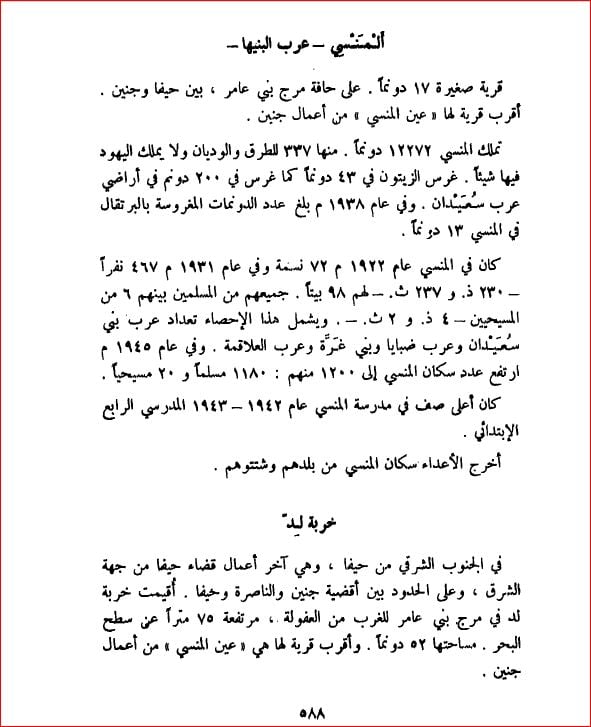 أَلْمَنْسِي – عرب البنيها –
قرية صغيرة ١٧ دونماً . على حافة مرج بني عامر ، بين حيفا وجنين .
أقرب قرية لها « عين المنسي » من أعمال جنين .
تملك المنسي ١٢٢٧٢ دونماً . منها ٣٣٧ للطرق والوديان ولا يملك اليهود
فيها شيئاً . غرس الزيتون في ٤٣ دونماً كما غرس في ٢٠٠ دونم في أراضي
عرب سُعَيْدان . وفي عام ١٩٣٨ م بلغ عدد الدونمات المغروسة بالبرتقال
في المنسي ١٣ دونماً .
كان في المنسي عام ١٩٢٢ م ٧٢ نسمة وفي عام ١٩٣١ م ٤٦٧ نفراً
– ٢٣٠ ذ. و ٢٣٧ ث. – لهم ٩٨ بيتاً . جميعهم من المسلمين بينهم ٦ من
المسيحيين – ٤ ذ. و ٢ ث. – . ويشمل هذا الإحصاء تعداد عرب بني
سُعَيْدان وعرب ضبايا وبني غَرَّة وعرب العلاقمة . وفي عام ١٩٤٥ م
ارتفع عدد سكان المنسي إلى ١٢٠٠ منهم : ١١٨٠ مسلماً و ٢٠ مسيحياً .
كان أعلى صف في مدرسة المنسي عام ١٩٤٢ – ١٩٤٣ المدرسي الرابع
الإبتدائي .
أخرج الأعداء سكان المنسي من بلدهم وشتتوهم .
خربة لِدّ
في الجنوب الشرقي من حيفا ، وهي آخر أعمال قضاء حيفا من جهة
الشرق ، وعلى الحدود بين أقضية جنين والناصرة وحيفا . أُقيمت خربة
لد في مرج بني عامر للغرب من العفولة ، مرتفعة ٧٥ متراً عن سطح
البحر . مساحتها ٥٢ دونماً . وأقرب قرية لها هي « عين المنسي » من أعمال
جنين .
٥٨٨